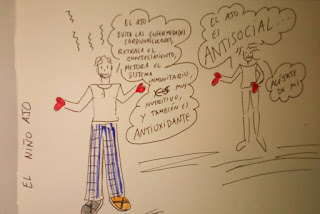 EL AJO
EVITA LAS ENFERMEDADES
CARDIOVASCULARES,
RETRASA EL
ENVEJECIMIENTO,
MEJORA EL
SISTEMA
INMUNITARIO,
ES MUY
NUTRITIVO,
Y TAMBIÉN ES
ANTIOXIDANTE
EL AJO ES
ANTISOCIAL...
ALÉJATE
DE MÍ
EL NIÑO AJO